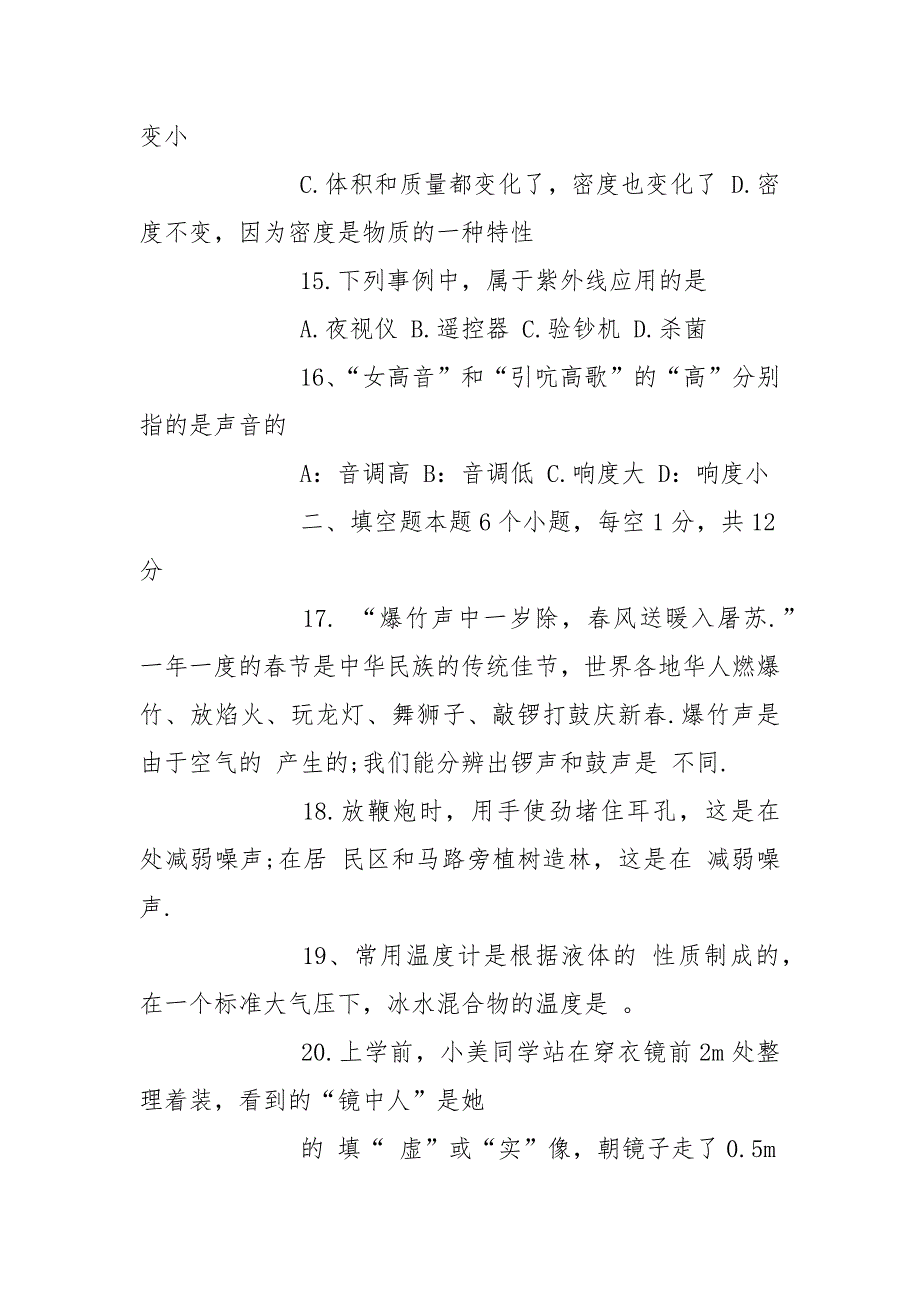 变小
C.体积和质量都变化了，密度也变化了 D.密
度不变，因为密度是物质的一种特性
15.下列事例中，属于紫外线应用的是
A.夜视仪 B.遥控器 C.验钞机 D.杀菌
16、“女高音”和“引吭高歌”的“高”分别
指的是声音的
A：音调高 B：音调低 C.响度大 D：响度小
二、填空题本题6个小题，每空1分，共12
分
17. “爆竹声中一岁除，春风送暖入屠苏.”
一年一度的春节是中华民族的传统佳节，世界各地华人燃爆
竹、放焰火、玩龙灯、舞狮子、敲锣打鼓庆新春.爆竹声是
由于空气的 产生的;我们能分辨出锣声和鼓声是 不同.
18.放鞭炮时，用手使劲堵住耳孔，这是在
处减弱噪声;在居 民区和马路旁植树造林，这是在 减弱噪
声.
19、常用温度计是根据液体的 性质制成的，
在一个标准大气压下，冰水混合物的温度是 。
20.上学前，小美同学站在穿衣镜前2m处整
理着装，看到的“镜中人”是她
的 填“ 虚”或“实”像，朝镜子走了0.5m